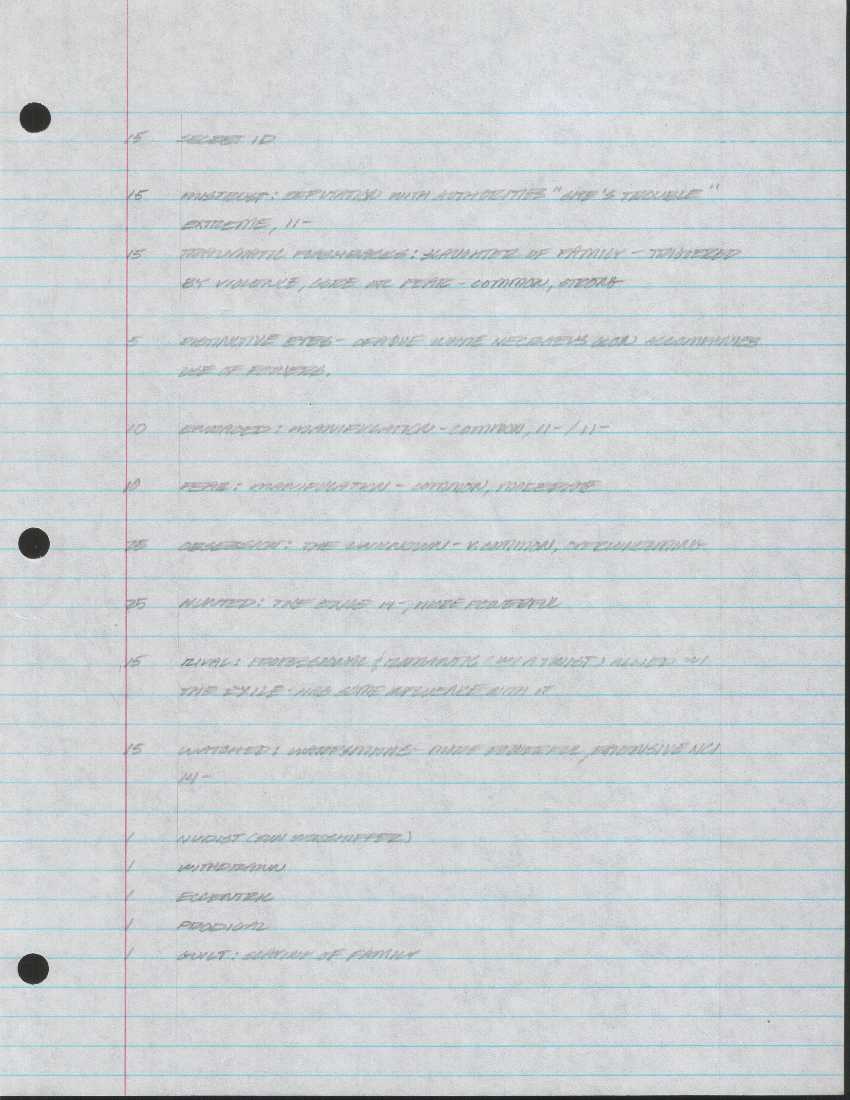 15 SECRET ID
15 MISTRUST: REPUTATION WITH AUTHORITIES "SHE'S TROUBLE"
EXTREME, 11-
15 TRAUMATIC FLASHBACKS: SLAUGHTER OF FAMILY - TRIGGERED
BY VIOLENCE, GORE OR FEAR - COMMON, STRONG
5 DISTINCTIVE EYES - OPAQUE WHITE GLOW ACCOMPANIES
USE OF POWERS.
10 ENRAGED: MANIPULATION - COMMON, 11- / 11-
10 FEAR: MANIPULATION - COMMON, MODERATE
25 OBSESSION: THE UNKNOWN - V. COMMON,
25 HUNTED: THE EXILE 14-, MORE POWERFUL
15 RIVAL: PROFESSIONAL & ROMANTIC (W/ A TWIST) ALLIED W/
THE EXILE - HAS SOME INFLUENCE WITH IT
15 WATCHED: - MORE POWERFUL, EXTENSIVE NCI
14-
1 NUDIST (SUN WORSHIPPER)
1 WITHDRAWN
1 ECCENTRIC
1 PRODIGAL
1 GUILT: OF FAMILY